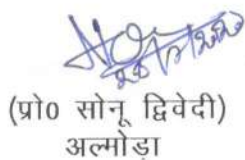 (प्रो0 सोनू द्विवेदी)
अल्मोड़ा